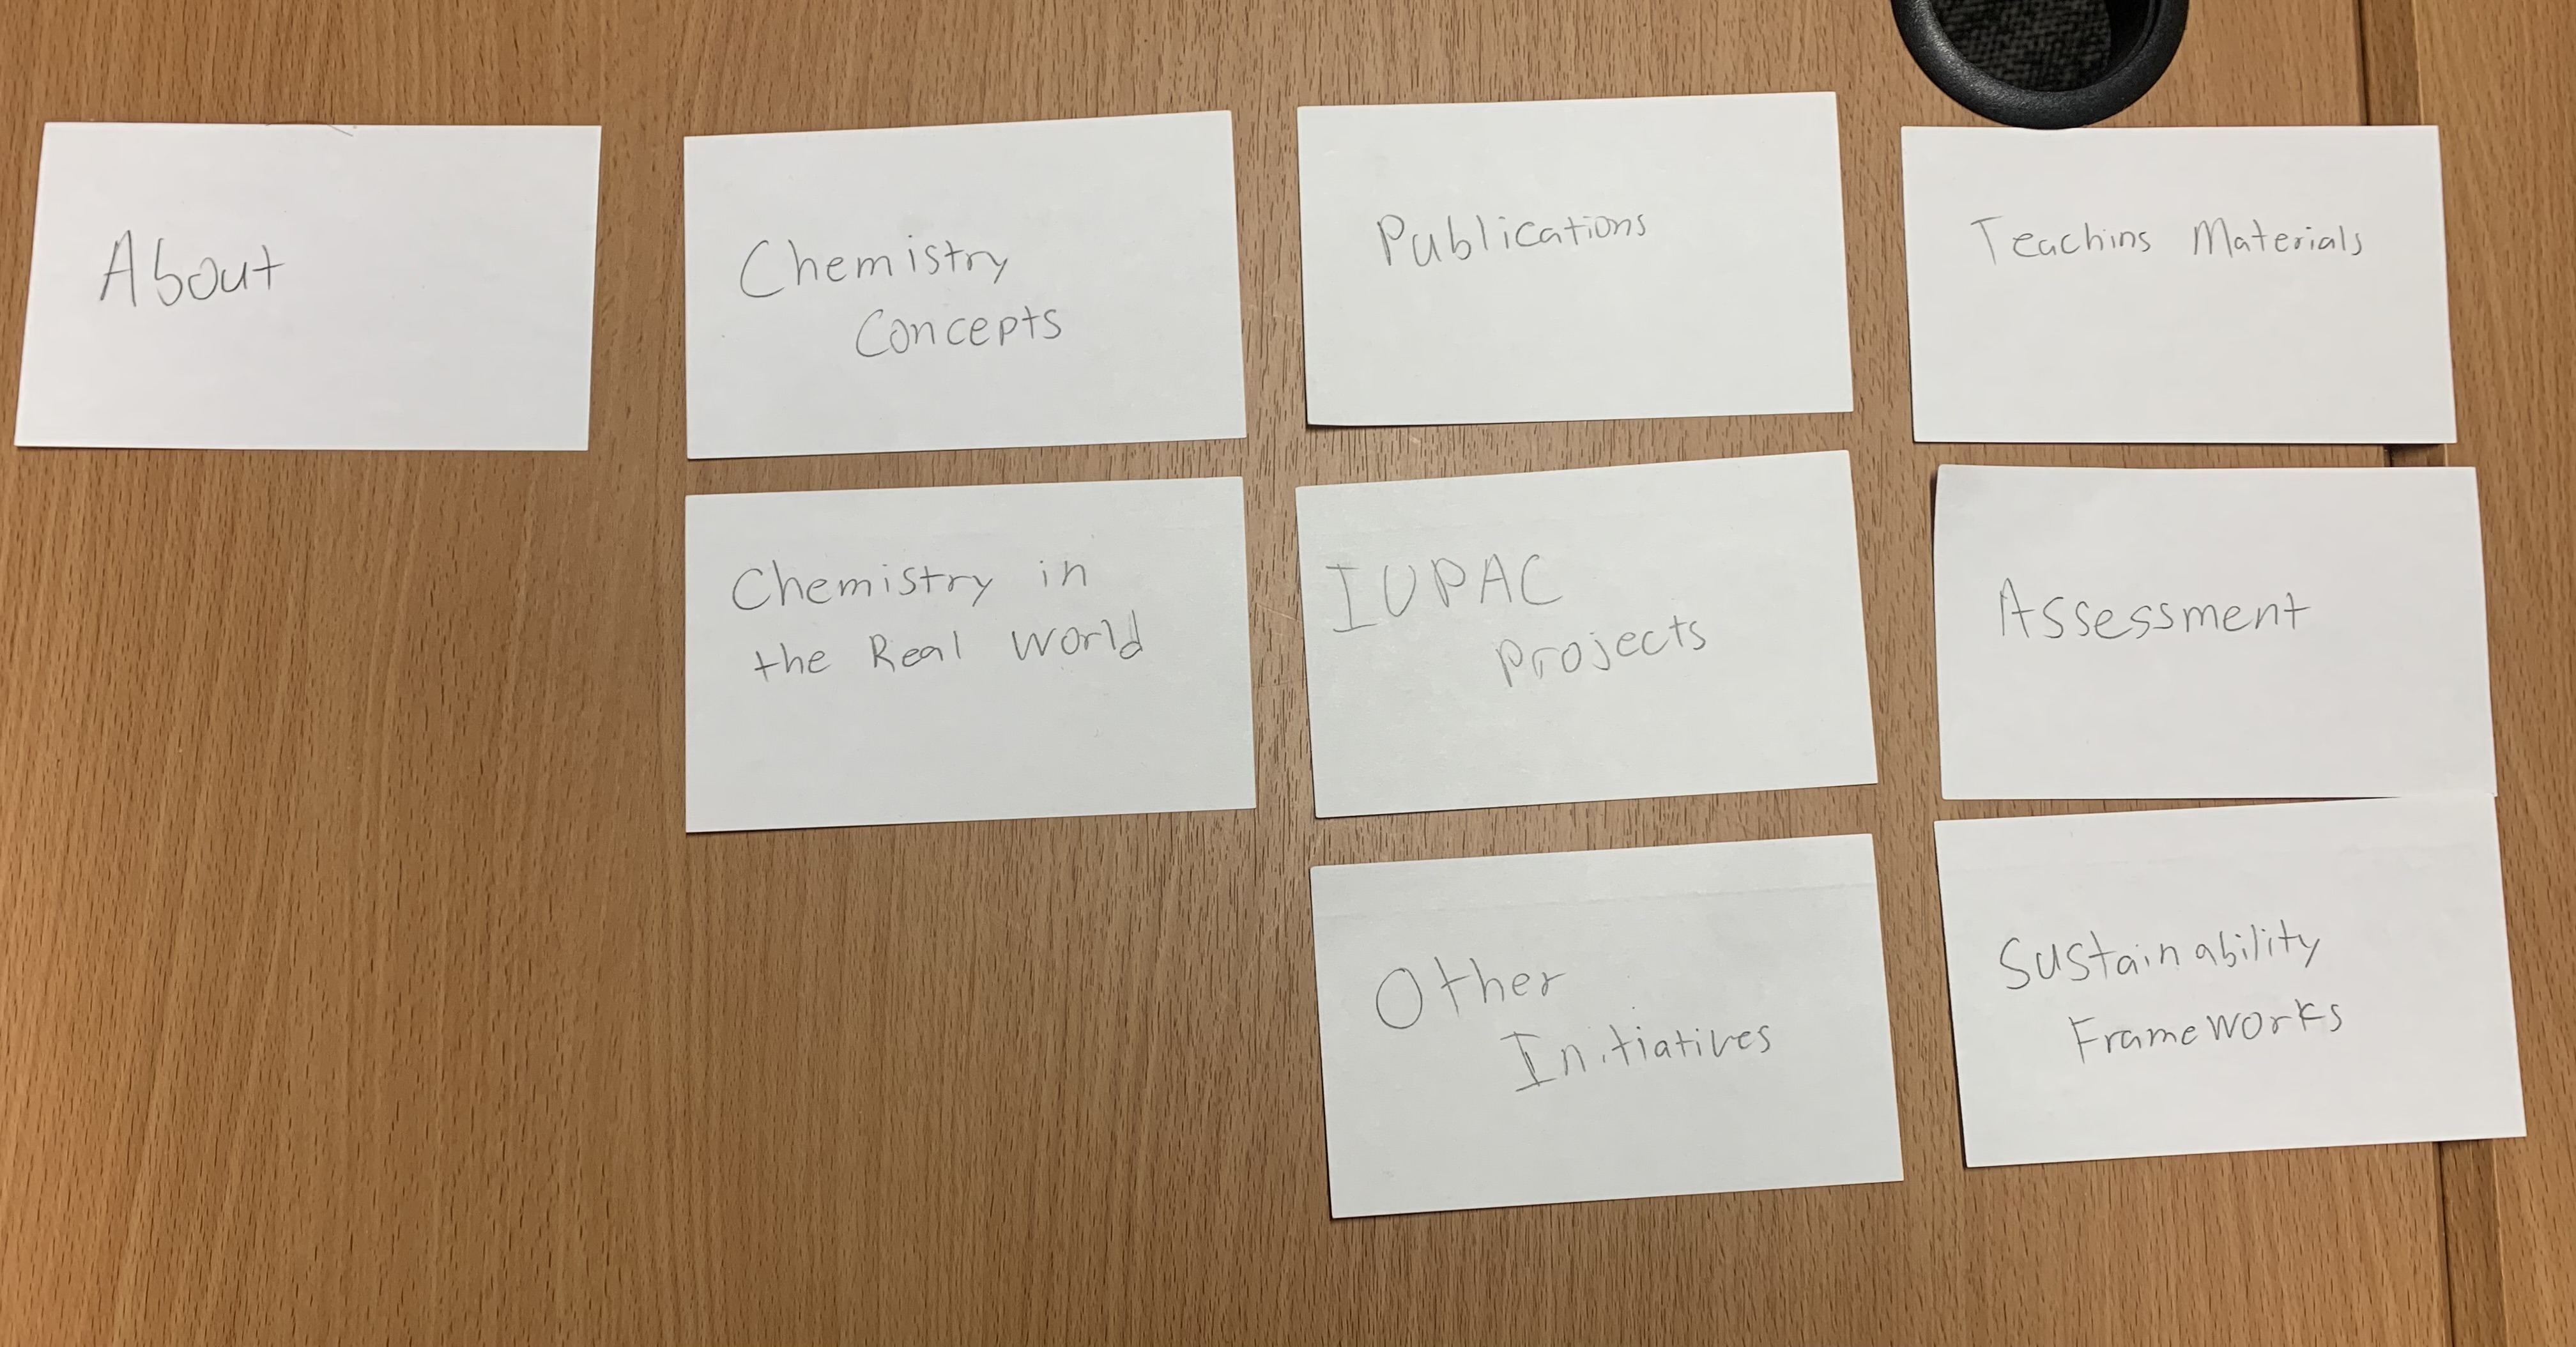 About
Chemistry
Concepts
Chemistry in
the Real World
Publications
IUPAC
Projects
Other
Initiatives
Teaching Materials
Assessment
Sustainability
Frameworks